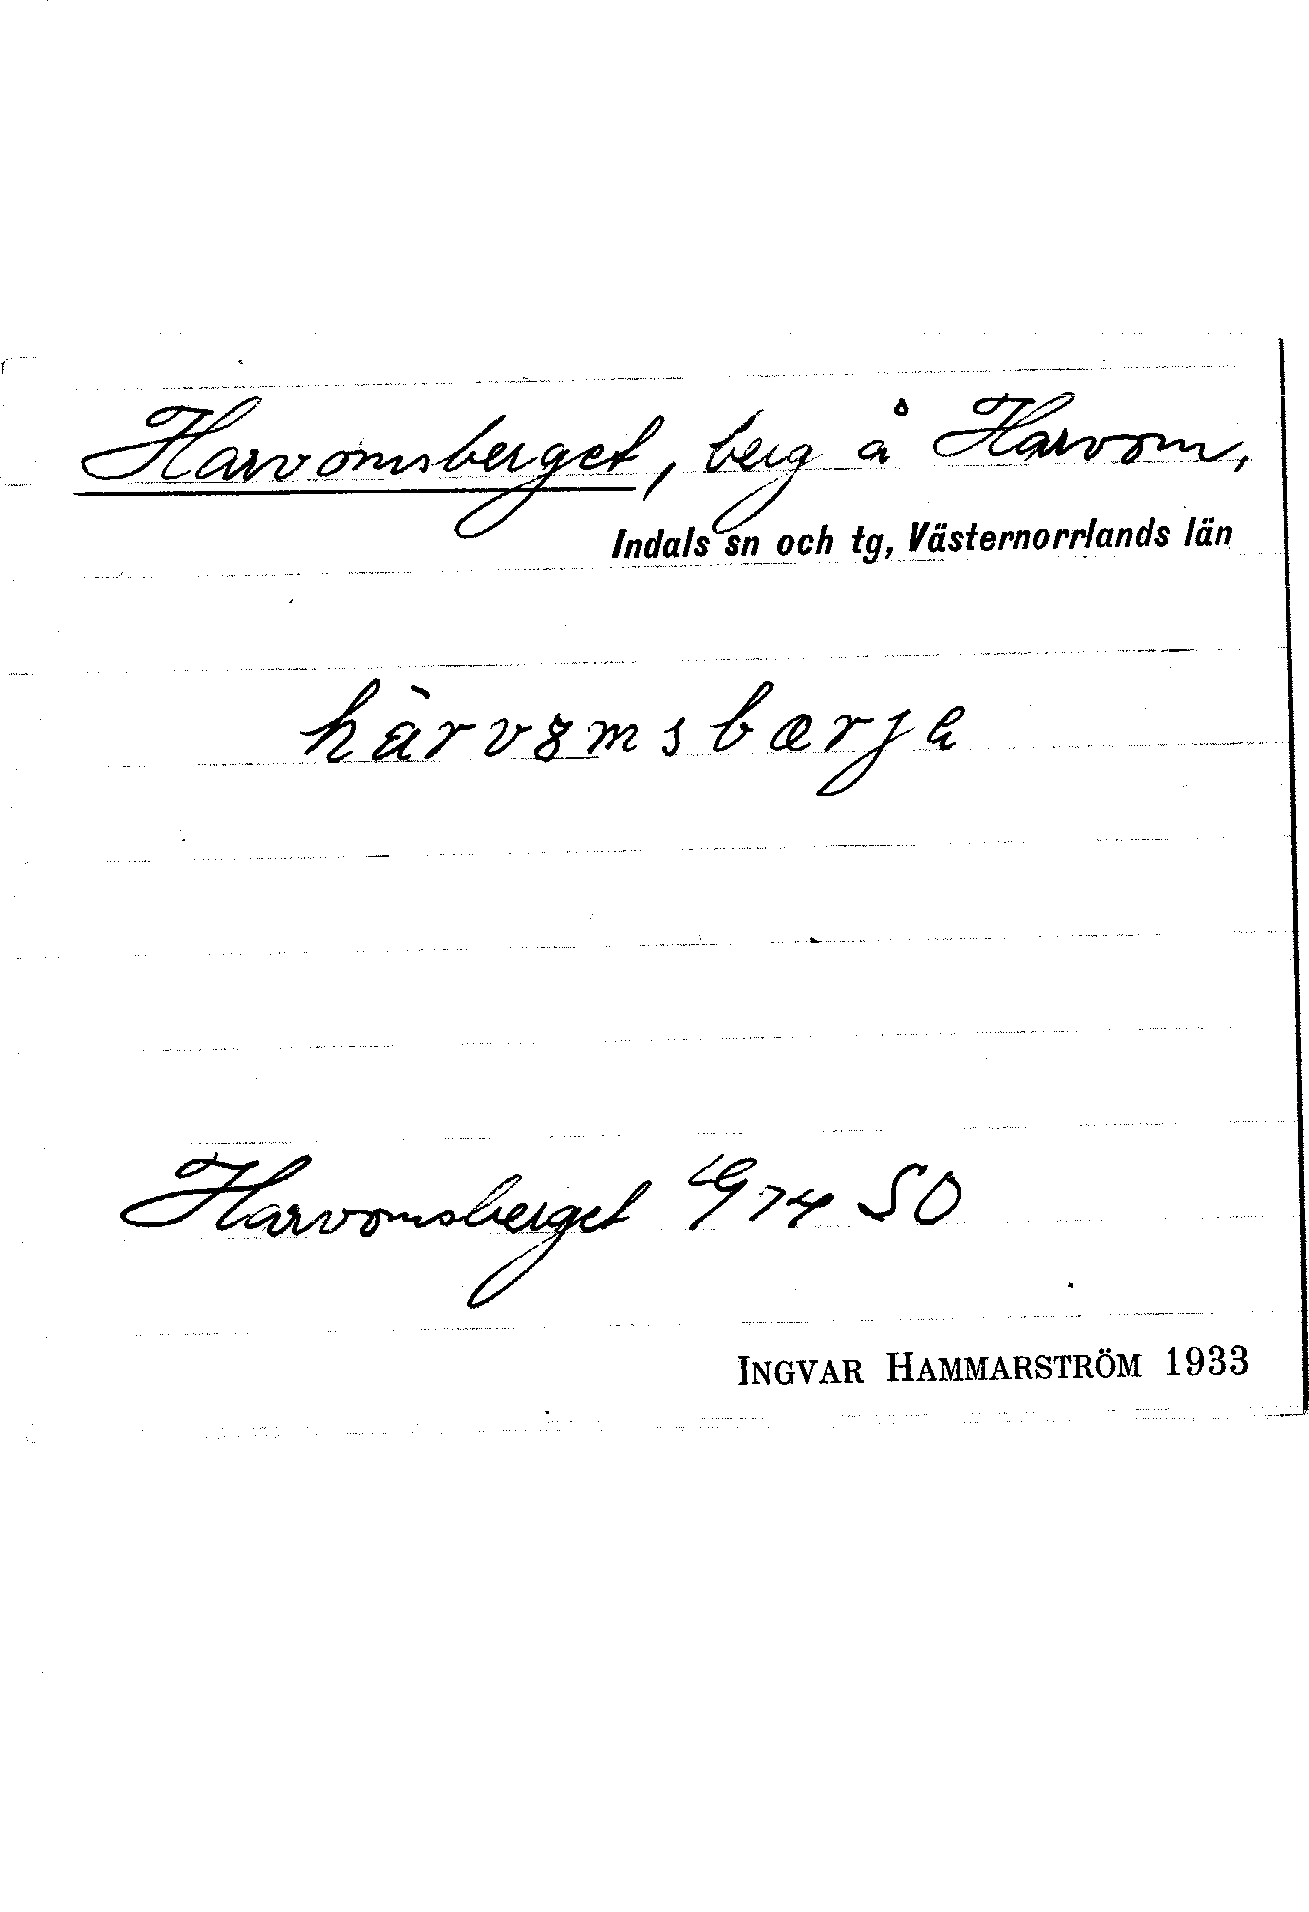 Harvomsberget, berg å Harvom,
Indals sn och tg, Västernorrlands län
Harvomsberget G 74 SO
INGVAR HAMMARSTRÖM 1933